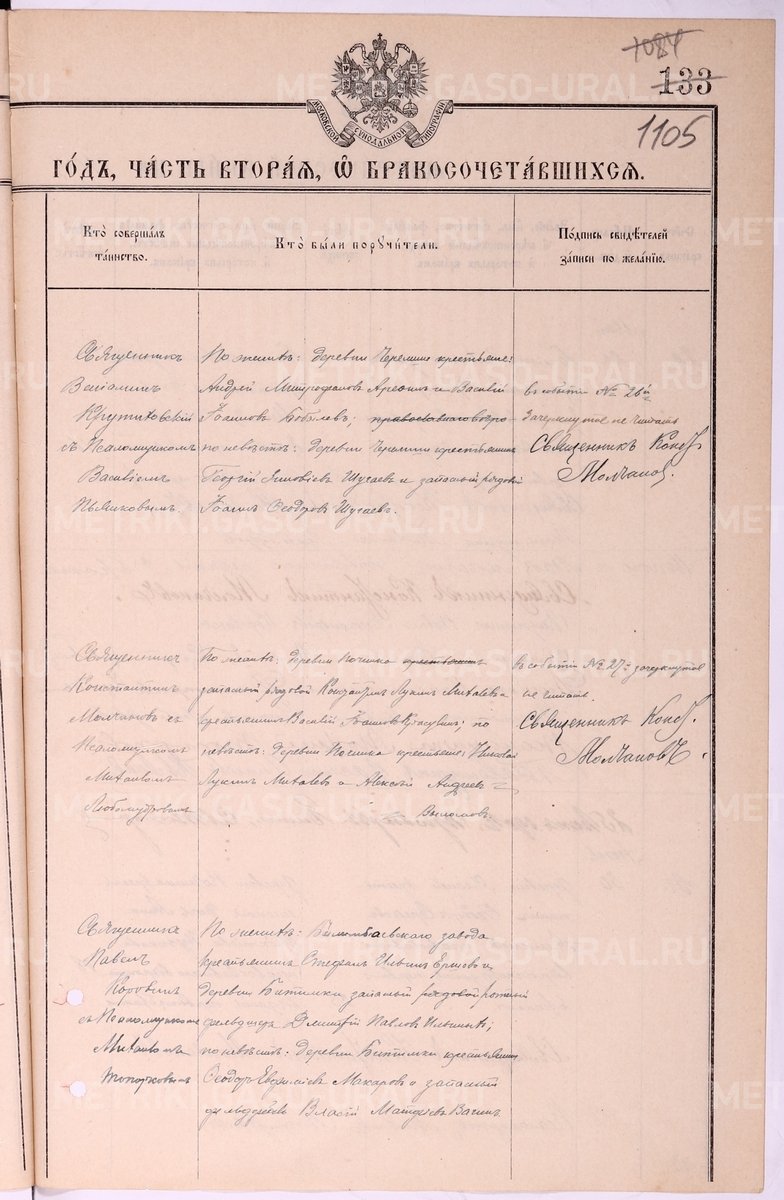 1084
133
1105
МОСКОВСКОЙ СѴНОДАЛЬНОЙ ТИПОГРАФІИ
ГО́ДЪ, ЧА́СТЬ ВТОРА́Я, Ѽ БРАКОСОЧЕТА́ВШИХСЯ.
Кто̀ соверша́лъ та́инство.
Кто̀ бы́ли порꙋчи́тели.
По́дпись свидѣ́телей за́писи по жела́нїю.
Священникъ
Крутиховскій
съ Псаломщикомъ
Василіемъ
По женихѣ: деревни Черемши крестьяне:
Андрей Митрофановъ и Василій
Іоанновъ Бобылевъ; православнаго
по невѣстѣ: деревни Черемши крестьянинъ
Георгій Шугаевъ и запасный рядовой
Іоаннъ Ѳеодоровъ Шугаевъ.
въ событіи № 26й
зачеркнутое не считать
Священникъ Конст.
Молчановъ.
Священникъ
Константинъ
Молчановъ съ
Псаломщикомъ
Михаиломъ
Любомудровымъ
По женихѣ: деревни Починка крестьянинъ
запасный рядовой Лукинъ Михалевъ и
крестьянинъ Василій Іоанновъ; по
невѣстѣ: деревни Починка крестьяне: Николай
Лукинъ Михалевъ и Алексій Андреевъ
въ событіи № 27й зачеркнутое
не считать.
Священникъ Конст.
Молчановъ.
Священникъ
Павелъ
Коровинъ
съ Псаломщикомъ
Михаиломъ
Топорковымъ
По женихѣ: Билимбаевскаго завода
крестьянинъ Стефанъ Ильинъ Ершовъ и
деревни Битимки запасный ротный
фельдшеръ Димитрій Павловъ;
по невѣстѣ: деревни Битимки крестьянинъ
Ѳеодоръ Евфиміевъ Макаровъ и запасный
Власій Матфіевъ